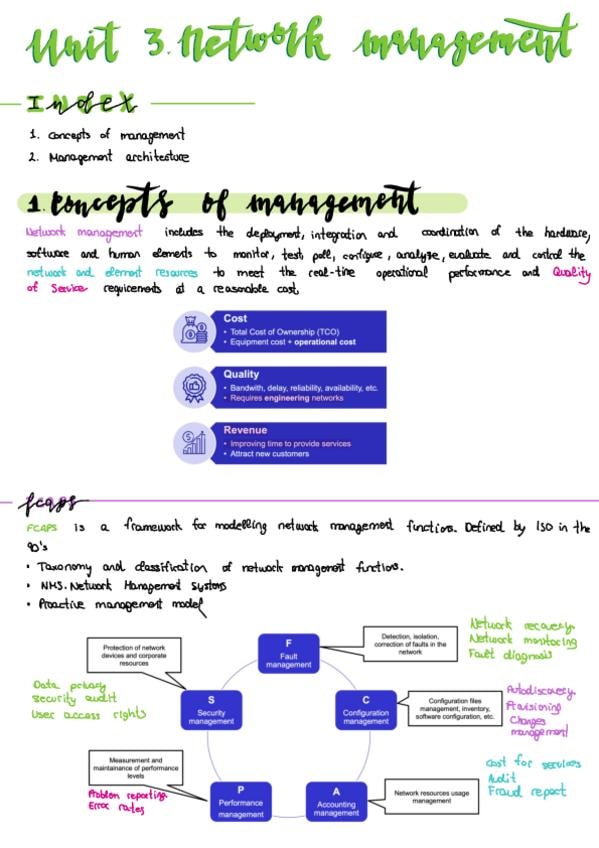 Unit 3. Network management
Index
1. Concepts of management
2. Management architecture
1. Concepts of management
Network management includes the deployment, integration and coordination of the hardware,
software and human elements to monitor, test, poll, configure, analyze, evaluate and control the
network and element resources to meet the real-time operational performance and Quality
of Service requirements at a reasonable cost.
Cost
• Total Cost of Ownership (TCO)
• Equipment cost + operational cost
Quality
• Bandwith, delay, reliability, availability, etc.
• Requires engineering networks
Revenue
• Improving time to provide services
• Attract new customers
fcaps
FCAPS is a framework for modelling network management functions. Defined by ISO in the
90's
• Taxonomy and classification of network management functions.
• NMS. Network Management Systems
• Proactive management model
F
Fault
management
Detection, isolation,
correction of faults in the
network
Network recovery.
Network monitoring
Fault diagnosis
Protection of network
devices and corporate
resources
Data privacy
Security audit
User access rights
S
Security
management
C
Configuration
management
Configuration files
management, inventory,
software configuration, etc.
Autodiscovery.
Provisioning
Changes
management
Measurement and
maintainance of performance
levels
Problem reporting.
Error rates
P
Performance
management
A
Accounting
management
Network resources usage
management
Cost for services
Audit
Fraud report